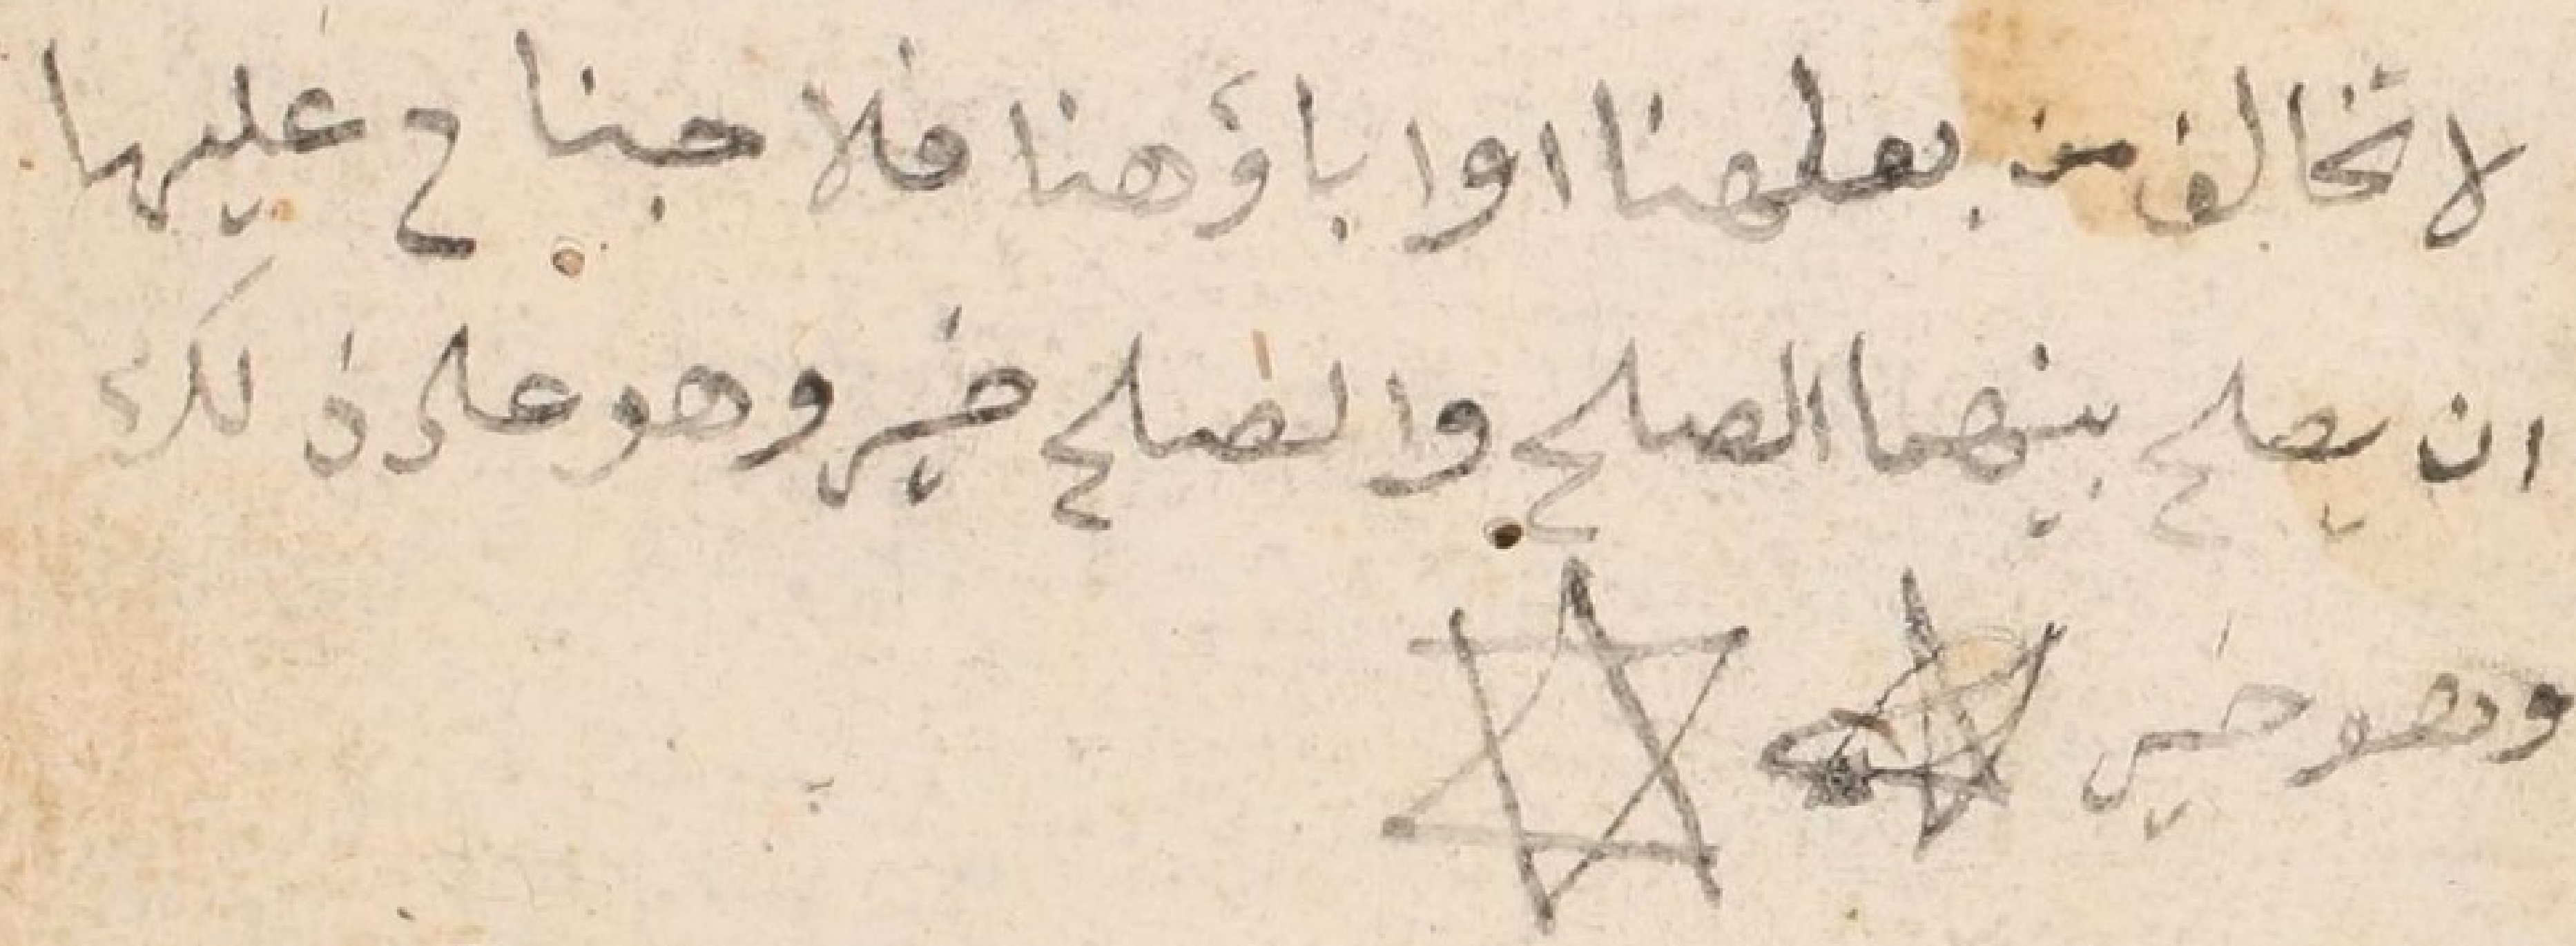 لا تخالف من بعلهنا اوا باؤهنا فلا جناح عليها
ان يصلح بينهما الصلح والصلح خير وهو على ذلك
وهو خير